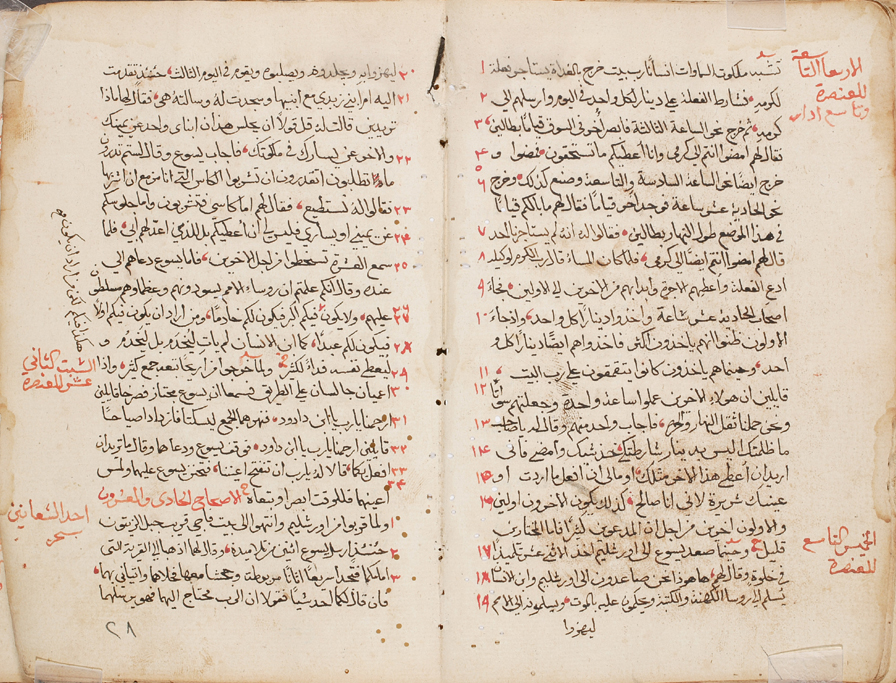 الاربعا التاسعة
للعنصرة
وتاسع ادار
١ تشبه ملكوت السماوات انسانًا رب بيت خرج بالغداة يستاجر فعلة
٢ لكرمه فشارط الفعلة على دينار لكل واحد في اليوم وارسلهم الى
٣ كرمه ثم خرج نحو الساعة الثالثة فابصر اخر في السوق قيامًا بطالين
٤ فقال لهم امضوا انتم الى كرمي وانا اعطيكم ما تستحقون فمضوا و
٥
٦ خرج ايضًا نحو الساعة السادسة والتاسعة وصنع كذلك وخرج
نحو الحادية عشر ساعة فوجد اخر قيامًا فقال لهم ما بالكم قيامًا
٧ في هذا الموضع طول النهار بطالين فقالوا له انه لم يستاجرنا احد
٨ قال لهم امضوا انتم ايضًا الى كرمي فلما كان المساء قال رب الكرم لوكيله
٩ ادع الفعلة واعطهم الاجرة وابدا بهم من الاخرين الى الاولين فجاء
١٠ اصحاب الحادية عشر ساعة واخذوا دينارًا كل واحد واذ جاء
الاولون ظنوا انهم ياخذون اكثر فاخذوا هم ايضًا دينارًا كل و
١١ احد وحينما هم ياخذون كانوا يتقمقمون على رب البيت
١٢ قايلين ان هولاء الاخرين عملوا ساعة واحدة وجعلتهم سوانا
١٣ ونحن حملنا ثقل النهار والحر فاجاب واحد منهم وقال له يا صاحب
١٤ ما ظلمتك اليس بدينار شارطتك فخذ شيك وامض فاني
١٥ اريد ان أعطي هذا الاخر مثلك او ما لي ان افعل ما اردت او
١٦ عينك شريرة لاني انا صالح كذلك يكون الاخرون اولين
والاولون اخرين من اجل ان المدعوين كثيرًا فاما المختارين
١٧ قليل وحينما صعد يسوع الى اورشليم اخذ الاثني عشر تلميذًا
١٨ في خلوة وقال لهم ها هوذا نحن صاعدون الى اورشليم وابن الانسان
١٩ يُسلم الى روسا الكهنة والكتبة ويحكمون عليه بالموت ويسلمونه الى الامم
ليهزوا
الخميس التاسع
للعنصرة
٢٠ ليهزوا به ويجلدوه ويصلبوه ويقوم في اليوم الثالث حينئذ تقدمت
٢١ اليه ام ابني زبدي مع ابنيها وسجدت له وسالته شي فقال لها ماذا
تريدين قالت له قل قولا ان يجلس هذان ابناي واحد عن يمينك
٢٢ والاخر عن يسارك في ملكوتك فاجاب يسوع وقال لستم تدرون
ماذا تطلبون اتقدرون ان تشربوا الكاس التي انا مزمع ان اشربها
٢٣ فقالوا له نستطيع فقال لهم اما كاسي فتشربون واما جلوسكم
٢٤ عن يميني او يساري فليس لي أن أعطيكم بل للذي اعد لهم ابي فلما
٢٥ سمع العشرة تسخطوا من اجل الاخوين فاما يسوع دعاهم الى
عنده وقال انكم علمتم ان روساء الامم يسودونهم وعظماوهم مسلطون
٢٦
٢٧ عليهم ولا يكون فيكم اكبر فيكون لكم خادمًا ومن اراد ان يكون فيكم اولا
٢٨ فيكون لكم عبدًا كما ان ابن الانسان لم يات ليُخدم بل ليَخدم و
٢٩ ليعطي نفسه فداءً لكثير ولما خرجوا من اريحا تبعه جمع كثير واذا
٣٠ اعميان جالسان على الطريق فسمعا ان يسوع مجتاز فصرخا قايلين
٣١ ارحمنا يا رب يا ابن داوود فنهرهما الجمع ليسكتا فازدادا صياحًا
٣٢ قايلين ارحمنا يا رب يا ابن داود فوقف يسوع ودعاهما وقال ما تريدان
٣٣ افعل بكما قالا له يا رب ان تنفتح اعيننا فتحنن يسوع عليهما ولمس
٣٤
اعينهما فللوقت ابصرا وتبعاه الاصحاح الحادى والعشرون
١ ولما قربوا من اورشليم وانتهوا الى بيت فاجي قريب جبل الزيتون
٢ حينئذ ارسل يسوع اثنين من تلاميذه وقال لهما اذهبا الى القرية التي
٣ امامكما فتجدا سريعًا اتانًا مربوطة وجحشا معها فحلاهما واتياني بهما
فان قال لكما احد شيئًا فقولا ان الرب محتاج اليهما فهو يرسلهما
السبت الثاني
عشر للعنصرة
احد الشعانين
سحر
٢٨